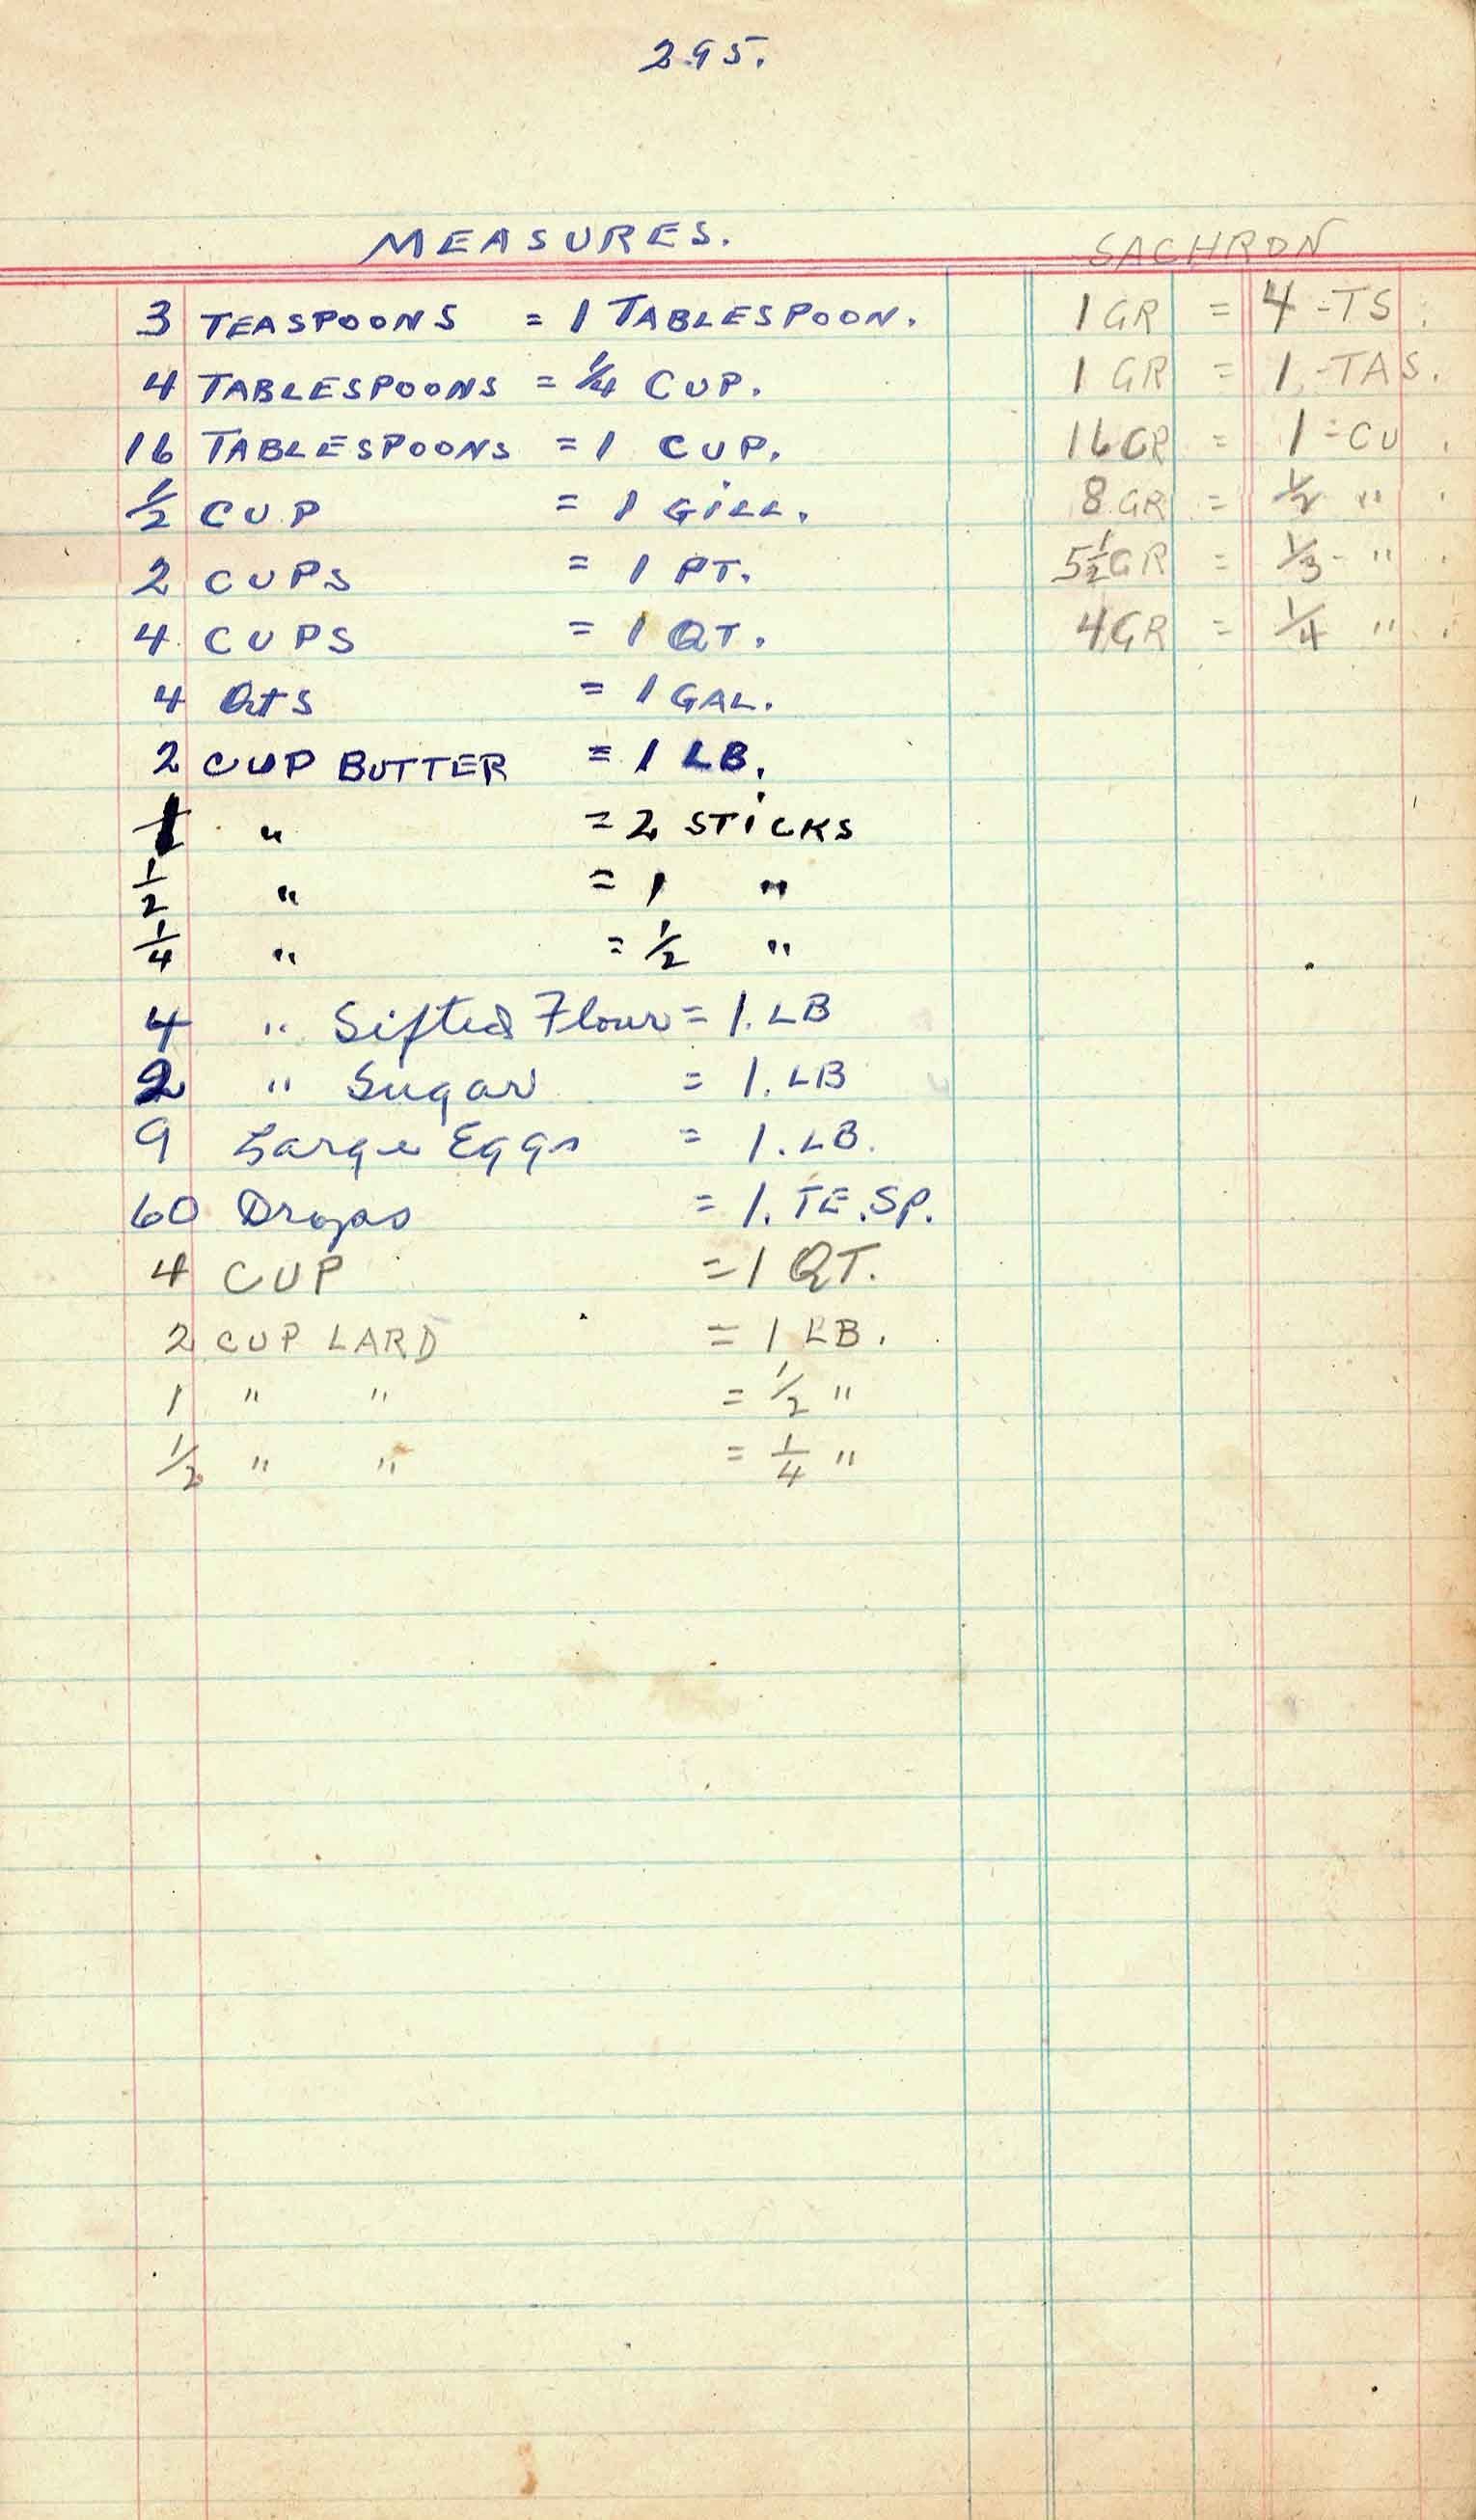 295.
MEASURES.
3 TEASPOONS = 1 TABLESPOON.
4 TABLESPOONS = 1/4 CUP.
16 TABLESPOONS = 1 CUP.
1/2 CUP = 1 GILL.
2 CUPS = 1 PT.
4 CUPS = 1 QT.
4 Qts = 1 GAL.
2 CUP BUTTER = 1 LB.
1 " = 2 STICKS
1/2 " = 1 "
1/4 " = 1/2 "
4 " Sifted Flour = 1. LB
2 " Sugar = 1. LB
9 Large Eggs = 1. LB.
60 Drops = 1. TE.SP.
4 CUP = 1 QT.
2 CUP LARD = 1 LB.
1 " " = 1/2 "
1/2 " " = 1/4 "
SACHRON
1 GR = 4 - TS.
1 GR = 1. - TAS.
16 GR = 1 - CU.
8 GR = 1/2 " .
5 1/2 GR = 1/3 - " .
4 GR = 1/4 " .